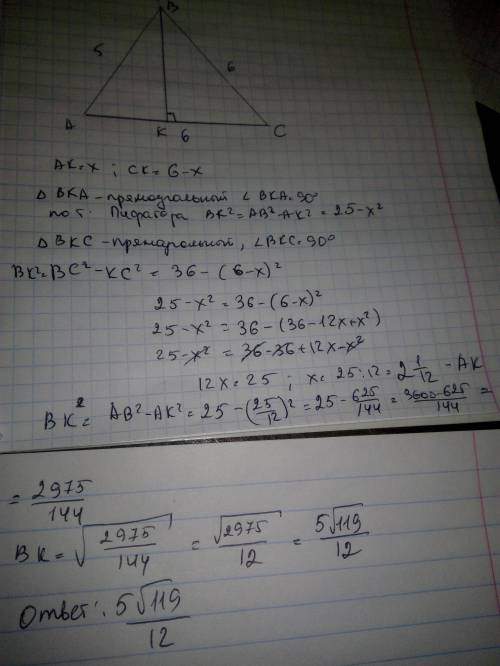 B
5
6
A
K
6
C
AK=x ; CK=6-x
△ BKA - прямоугольный ∠ BKA=90°
по т. Пифагора BK²=AB²-AK²=25-x²
△ BKC - прямоугольный, ∠BKC=90°
BK²=BC²-KC²=36-(6-x)²
25-x²=36-(6-x)²
25-x²=36-(36-12x+x²)
25-x²=36-36+12x-x²
12x=25 ; x=25:12=2 1/12 - AK
BK²=AB²-AK²=25-(25/12)²=25-625/144=3600-625/144=
=2975/144
BK=√(2975/144)=√2975/12=5√119/12
Ответ: 5√119/12